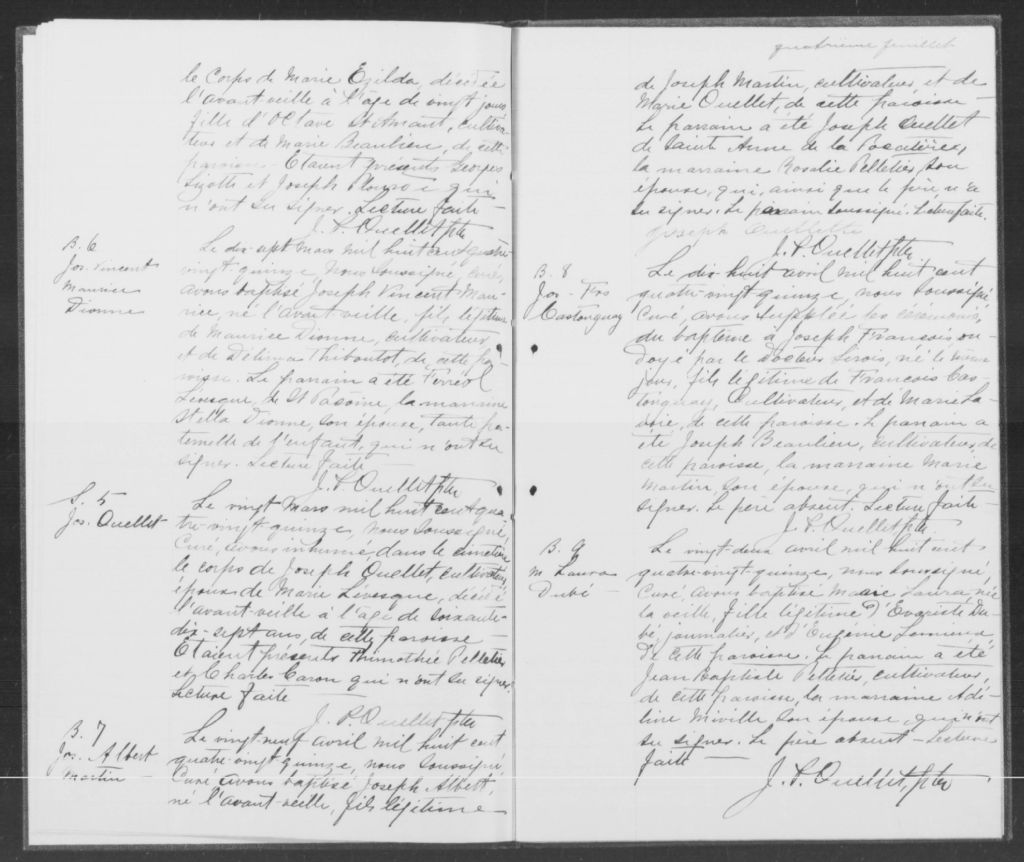 le Corps de Marie Ezilda, décédée
l'avant veille à l'âge de vingt jours,
fille d'Octave St Amant, cultiva-
teur et de Marie Beaulieu, de cette
paroisse - Etaient présents Georges
Lizotte et Joseph qui
n'ont su signer. Lecture faite -
J. P. Ouellet ptre
B. 6
Jos. Vincent
Maurice
Dionne
Le dix sept mars mil huit cent quatre
vingt quinze, Nous soussigné, curé,
avons baptisé Joseph Vincent Mau-
rice, né l'avant veille, fils légitime
de Maurice Dionne, cultivateur
et de Délima Thiboutot, de cette pa-
roisse. Le parrain a été Ferréol
Lévesque, de St Pacome, la marraine
Stella Dionne, son épouse, tante pa-
ternelle de l'enfant, qui n'ont su
signer. Lecture faite -
J. P. Ouellet ptre
S. 5
Jos. Ouellet
Le vingt Mars mil huit cent qua
tre-vingt quinze, nous soussigné,
Curé, avons inhumé dans le cimetière
le corps de Joseph Ouellet, cultivateur,
époux de Marie Lévesque, décédé
l'avant-veille à l'âge de soixante-
dix-sept ans, de cette paroisse -
Etaient présents Thimothée Pelletier
et Charles Caron qui n'ont su signer.
Lecture faite
J. P. Ouellet ptre
B. 7
Jos. Albert
Martin -
Le vingt neuf avril mil huit cent
quatre-vingt quinze, nous soussigné,
Curé avons baptisé Joseph Albert,
né l'avant-veille, fils légitime
quatrieme feuillet
de Joseph Martin, cultivateur, et de
Marie Ouellet, de cette paroisse -
Le parrain a été Joseph Ouellet
de Sainte Anne de la Pocatière,
la marraine Rosalie Pelletier, son
épouse, qui, ainsi que le père n'a
su signer. Le parrain soussigné. Lecture faite.
Joseph Ouellette
J. P. Ouellet ptre
B. 8
Jos - Frs
Castonguay
Le dix-huit avril mil huit cent
quatre-vingt quinze, nous soussigné,
Curé, avons suppléé les cérémonies
du baptême à Joseph François on-
doyé par le docteur Sirois, né le même
jour, fils légitime de François Cas-
tonguay, Cultivateur, et de Marie La-
voie, de cette paroisse. Le parrain a
été Joseph Beaulieu, cultivateur, de
cette paroisse, la marraine Marie
Martin son épouse, qui n'ont su
signer. Le père absent. Lecture faite -
J. P. Ouellet ptre
B. 9
M Laura
Dubé -
Le vingt-deux avril mil huit cent
quatre-vingt-quinze, nous soussigné,
Curé, avons baptisé Marie Laura, née
la veille, fille légitime d'Evariste Du-
bé, journalier, et d'Eugénie Lemieux
de cette paroisse. Le parrain a été
Jean Baptiste Pelletier, cultivateur,
de cette paroisse, la marraine Adé-
line Miville son épouse, qui n'ont
su signer. Le père absent - Lecture
faite -
J. P. Ouellet, ptre